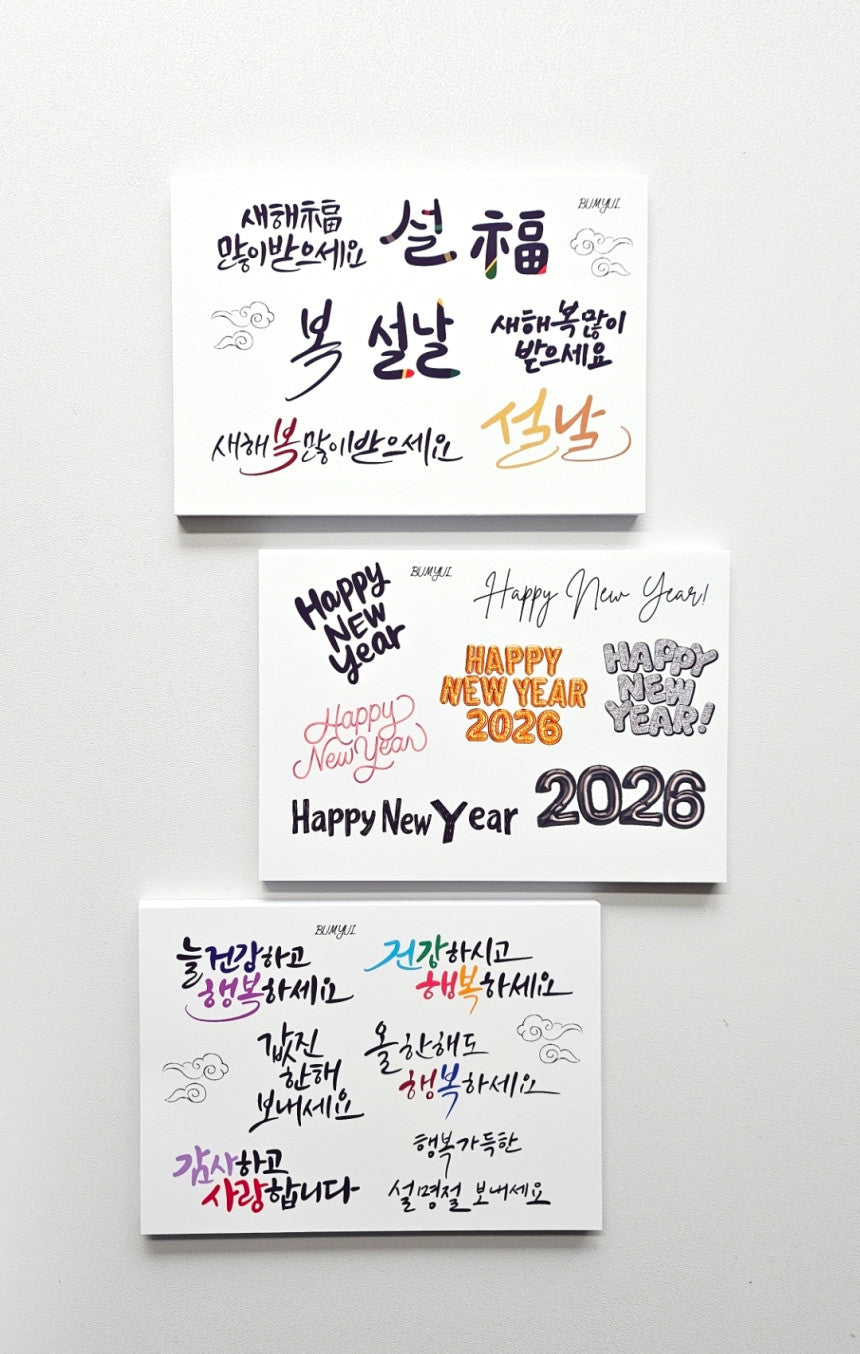 BUMYUL
새해福
많이받으세요
설
福
복
설날
새해복많이
받으세요
새해복많이받으세요
설날
BUMYUL
Happy
NEW
year
Happy New Year!
HAPPY
NEW YEAR
2026
HAPPY
NEW
YEAR!
Happy
New Year
Happy New Year
2026
BUMYUL
늘건강하고
행복하세요
건강하시고
행복하세요
값진
한해
보내세요
올한해도
행복하세요
감사하고
사랑합니다
행복가득한
설명절 보내세요